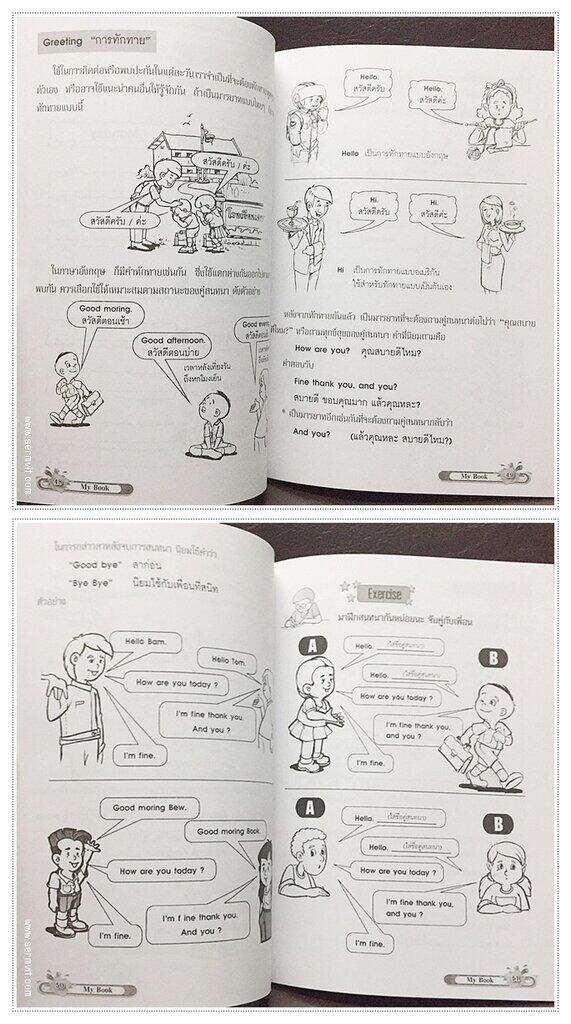 Greeting "การทักทาย"
ใช้ในการติดต่อหรือพบปะกันในแต่ละวัน เราจำเป็นที่จะต้อง
ตัวเอง หรืออาจใช้แนะนำคนอื่นให้รู้จักกัน ถ้าเป็นมารยาทแบบไทยๆ
ทักทายแบบนี้
สวัสดีครับ / ค่ะ
สวัสดีครับ / ค่ะ
ในภาษาอังกฤษ ก็มีคำทักทายเช่นกัน ซึ่งใช้แตกต่างกันออกไป
พบกัน ควรเลือกใช้ให้เหมาะสมตามสถานะของคู่สนทนา ดังตัวอย่าง
Good moring.
สวัสดีตอนเช้า
Good afternoon.
สวัสดีตอนบ่าย
เวลาหลังเที่ยงวัน
ถึงหกโมงเย็น
Good
48
My Book
Hello.
สวัสดีครับ
Hello.
สวัสดีค่ะ
Hello เป็นการทักทายแบบอังกฤษ
Hi.
สวัสดีครับ
Hi.
สวัสดีค่ะ
Hi เป็นการทักทายแบบอเมริกัน
ใช้สำหรับทักทายแบบเป็นกันเอง
หลังจากทักทายกันแล้ว เป็นมารยาทที่จะต้องถามคู่สนทนาต่อไปว่า "คุณสบาย
ดีไหม?" หรือถามทุกข์สุขของคู่สนทนา คำที่นิยมถามคือ
How are you? คุณสบายดีไหม?
คำตอบรับ
Fine thank you, and you?
สบายดี ขอบคุณมาก แล้วคุณหละ?
* เป็นมารยาทอีกเช่นกันที่จะต้องถามคู่สนทนากลับว่า
And you? (แล้วคุณหละ สบายดีไหม?)
My Book
49
www.sermvit.com
ในการกล่าวลาหลังจบการสนทนา นิยมใช้คำว่า
"Good bye" ลาก่อน
"Bye Bye" นิยมใช้กับเพื่อนที่สนิท
ตัวอย่าง
Hello Bam.
Hello Tom.
How are you today ?
I'm fine thank you.
And you ?
I'm fine.
Good moring Bew.
Good moring Book.
How are you today ?
I'm f ine thank you.
And you ?
I'm fine.
50
My Book
Exercise
มาฝึกสนทนากันหน่อยนะ จับคู่กับเพื่อน
A
B
Hello. (ใส่ชื่อคู่สนทนา)
Hello. (ใส่ชื่อคู่สนทนา)
How are you today ?
I'm fine thank you,
and you ?
I'm fine.
A
B
Hello. (ใส่ชื่อคู่สนทนา)
Hello. (ใส่ชื่อคู่สนทนา)
How are you today ?
I'm fine thank you,
and you ?
I'm fine.
My Book
51
www.sermvit.com